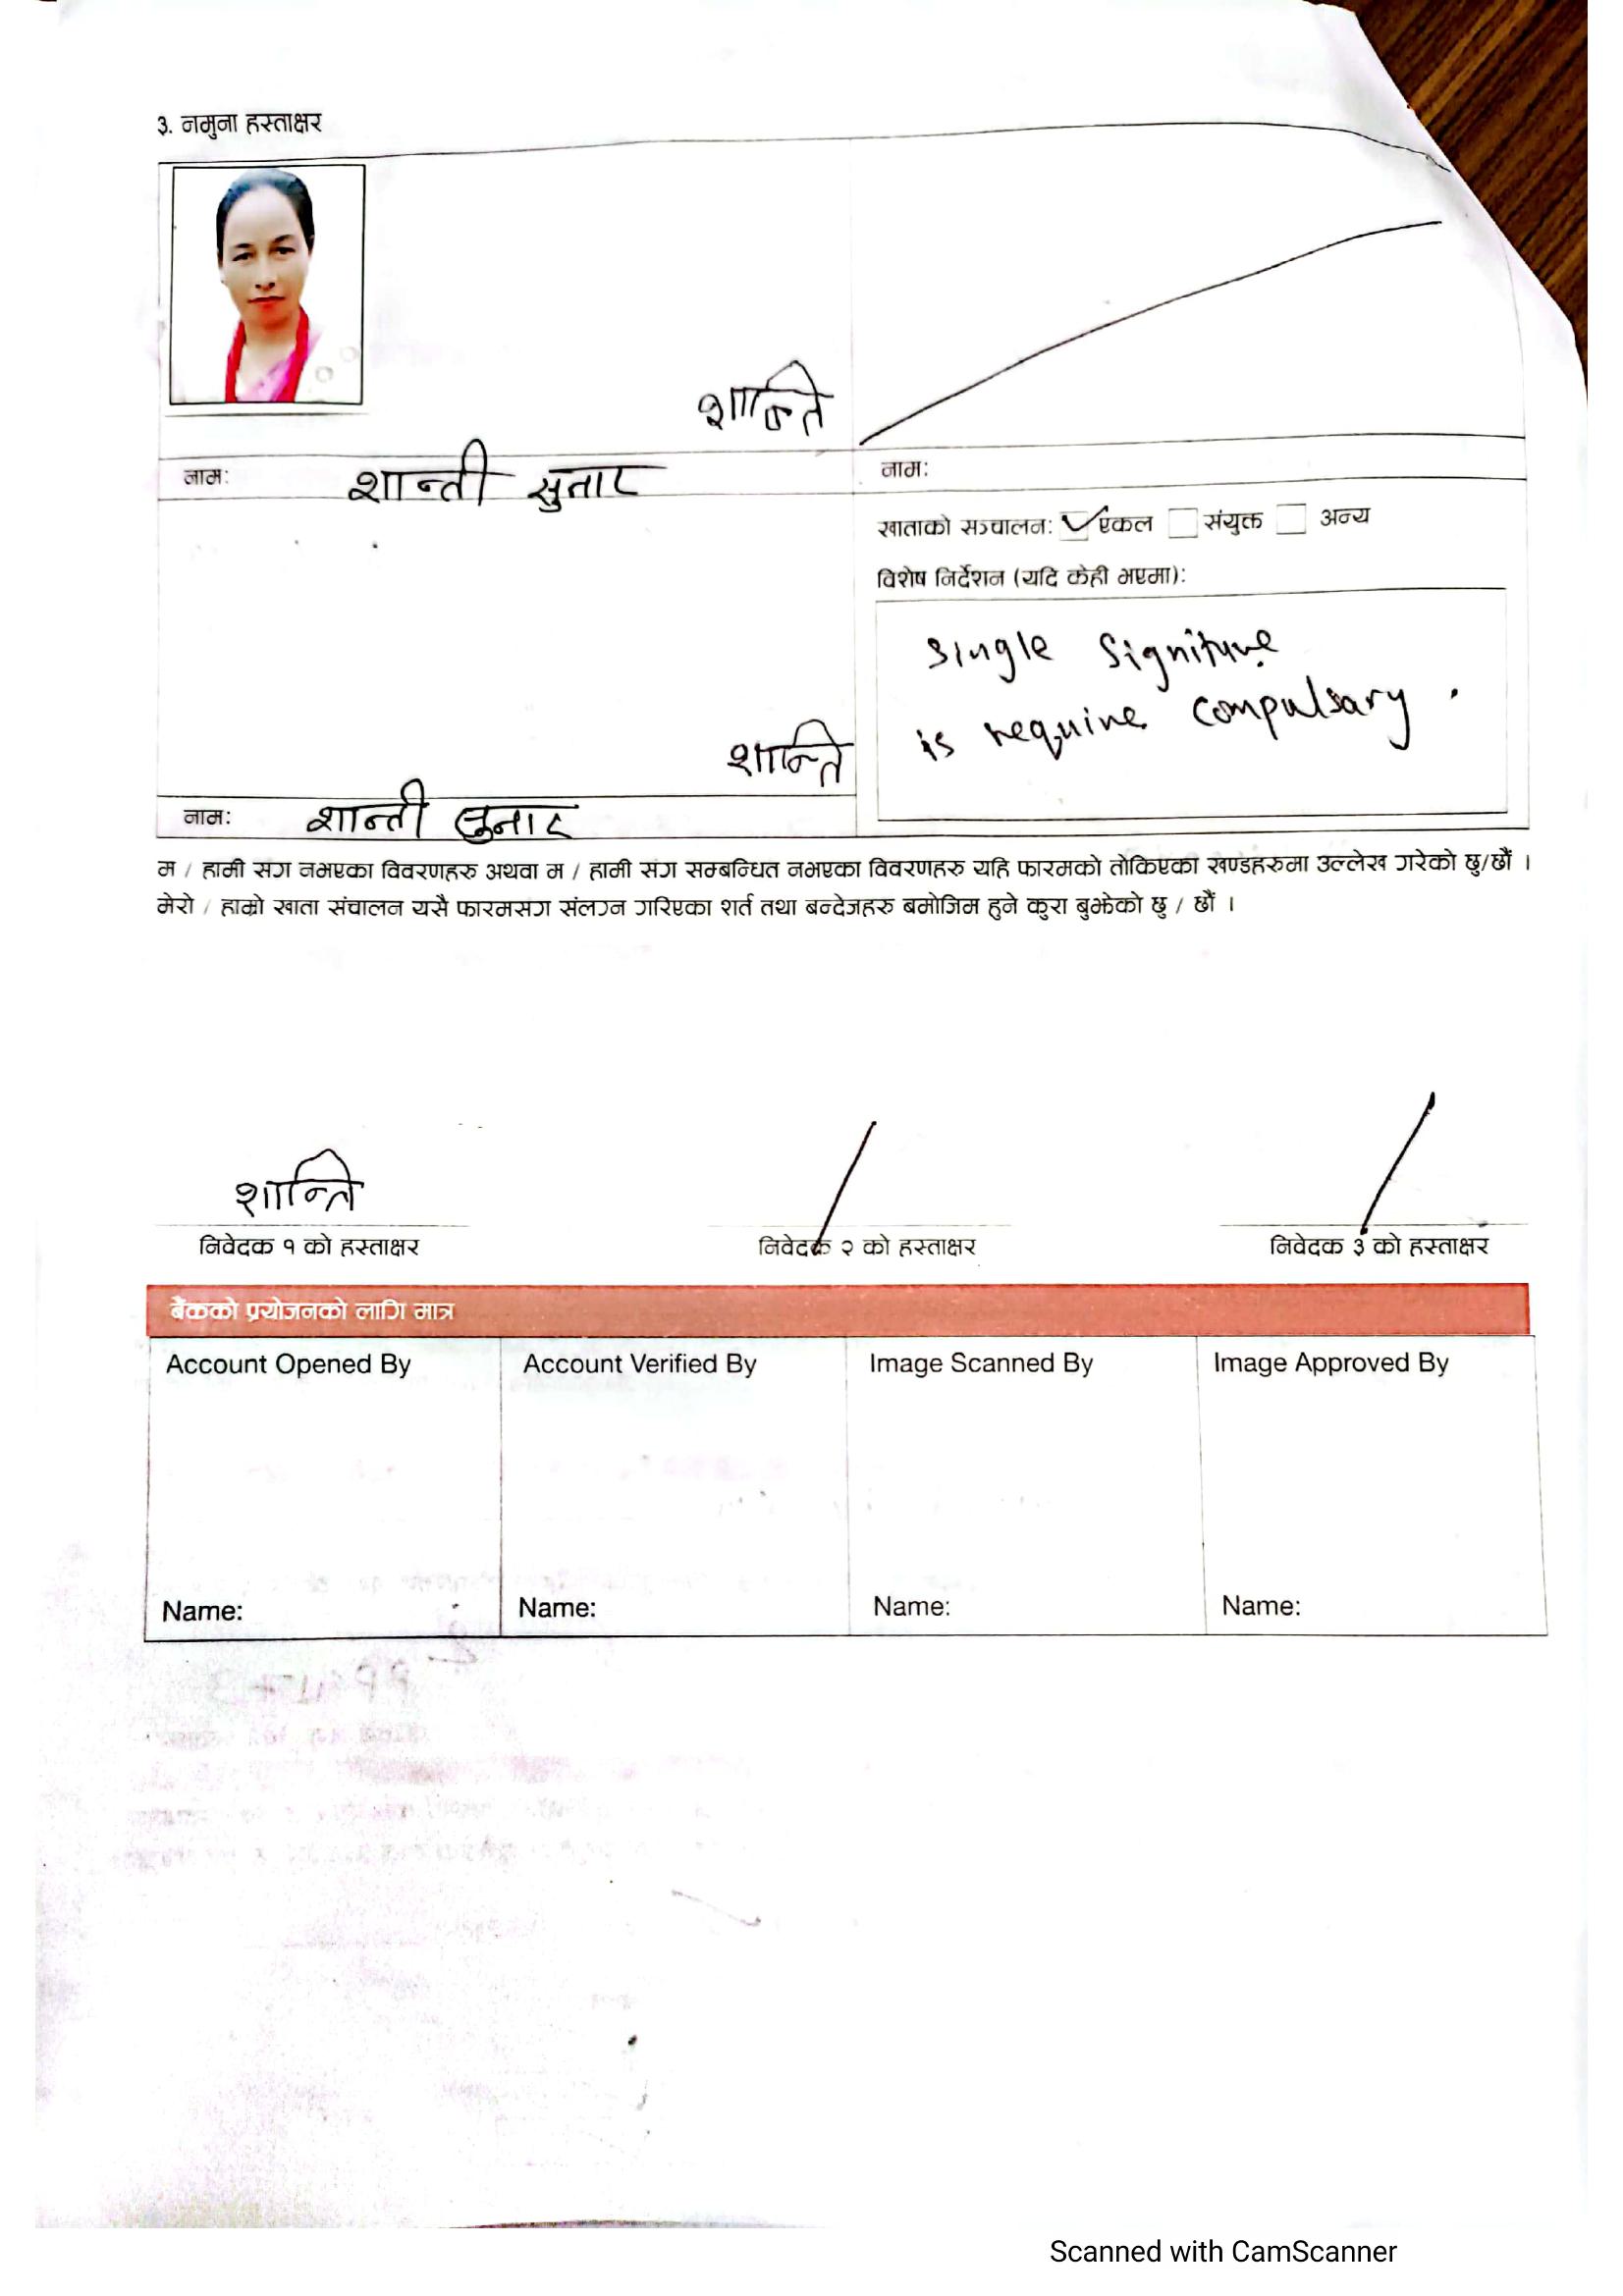 ३. नमुना हस्ताक्षर
शान्ति
नाम: शान्ती सुनार
नाम:
खाताको सञ्चालन: एकल संयुक्त अन्य
विशेष निर्देशन (यदि केही भएमा):
Single Signiture
is require compulsary.
शान्ति
नाम: शान्ती सुनार
म / हामी संग नभएका विवरणहरु अथवा म / हामी संग सम्बन्धित नभएका विवरणहरु यहि फारमको तोकिएका खण्डहरुमा उल्लेख गरेको छु/छौं ।
मेरो / हाम्रो खाता संचालन यसै फारमसंग संलग्न गरिएका शर्त तथा बन्देजहरु बमोजिम हुने कुरा बुझेको छु / छौं ।
शान्ति
निवेदक १ को हस्ताक्षर निवेदक २ को हस्ताक्षर निवेदक ३ को हस्ताक्षर
बैंकको प्रयोजनको लागि मात्र
Account Opened By Account Verified By Image Scanned By Image Approved By
Name: Name: Name: Name:
Scanned with CamScanner